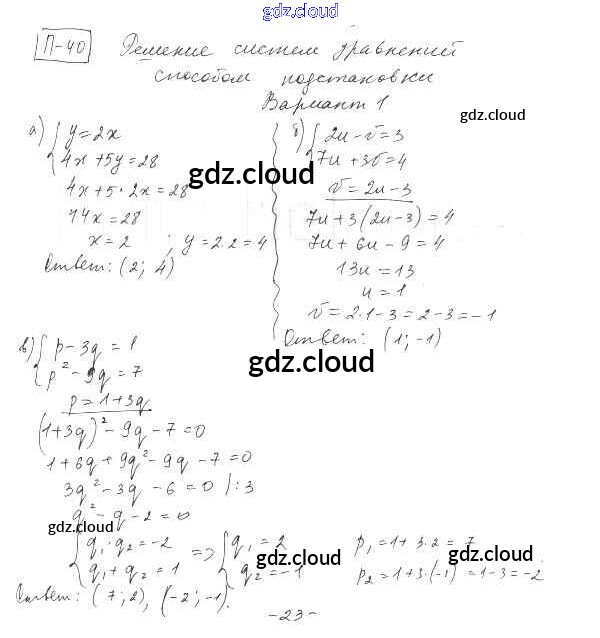 gdz.cloud
П-40 Решение систем уравнений
способом подстановки
Вариант 1
gdz.cloud
а) { y = 2x
4x + 5y = 28
4x + 5 · 2x = 28
14x = 28
x = 2 ; y = 2·2 = 4
Ответ: (2; 4)
gdz.cloud
б) { 2u - v = 3
7u + 3v = 4
v = 2u - 3
7u + 3(2u - 3) = 4
7u + 6u - 9 = 4
13u = 13
u = 1
v = 2·1 - 3 = 2 - 3 = -1
Ответ: (1; -1)
gdz.cloud
в) { p - 3q = 1
p² - 9q = 7
p = 1 + 3q
(1 + 3q)² - 9q - 7 = 0
1 + 6q + 9q² - 9q - 7 = 0
3q² - 3q - 6 = 0 /:3
q² - q - 2 = 0
gdz.cloud
{ q₁ · q₂ = -2 => { q₁ = 2 p₁ = 1 + 3·2 = 7
q₁ + q₂ = 1 q₂ = -1 p₂ = 1 + 3·(-1) = 1 - 3 = -2
gdz.cloud
gdz.cloud
Ответ: (7; 2), (-2; -1).
-23-